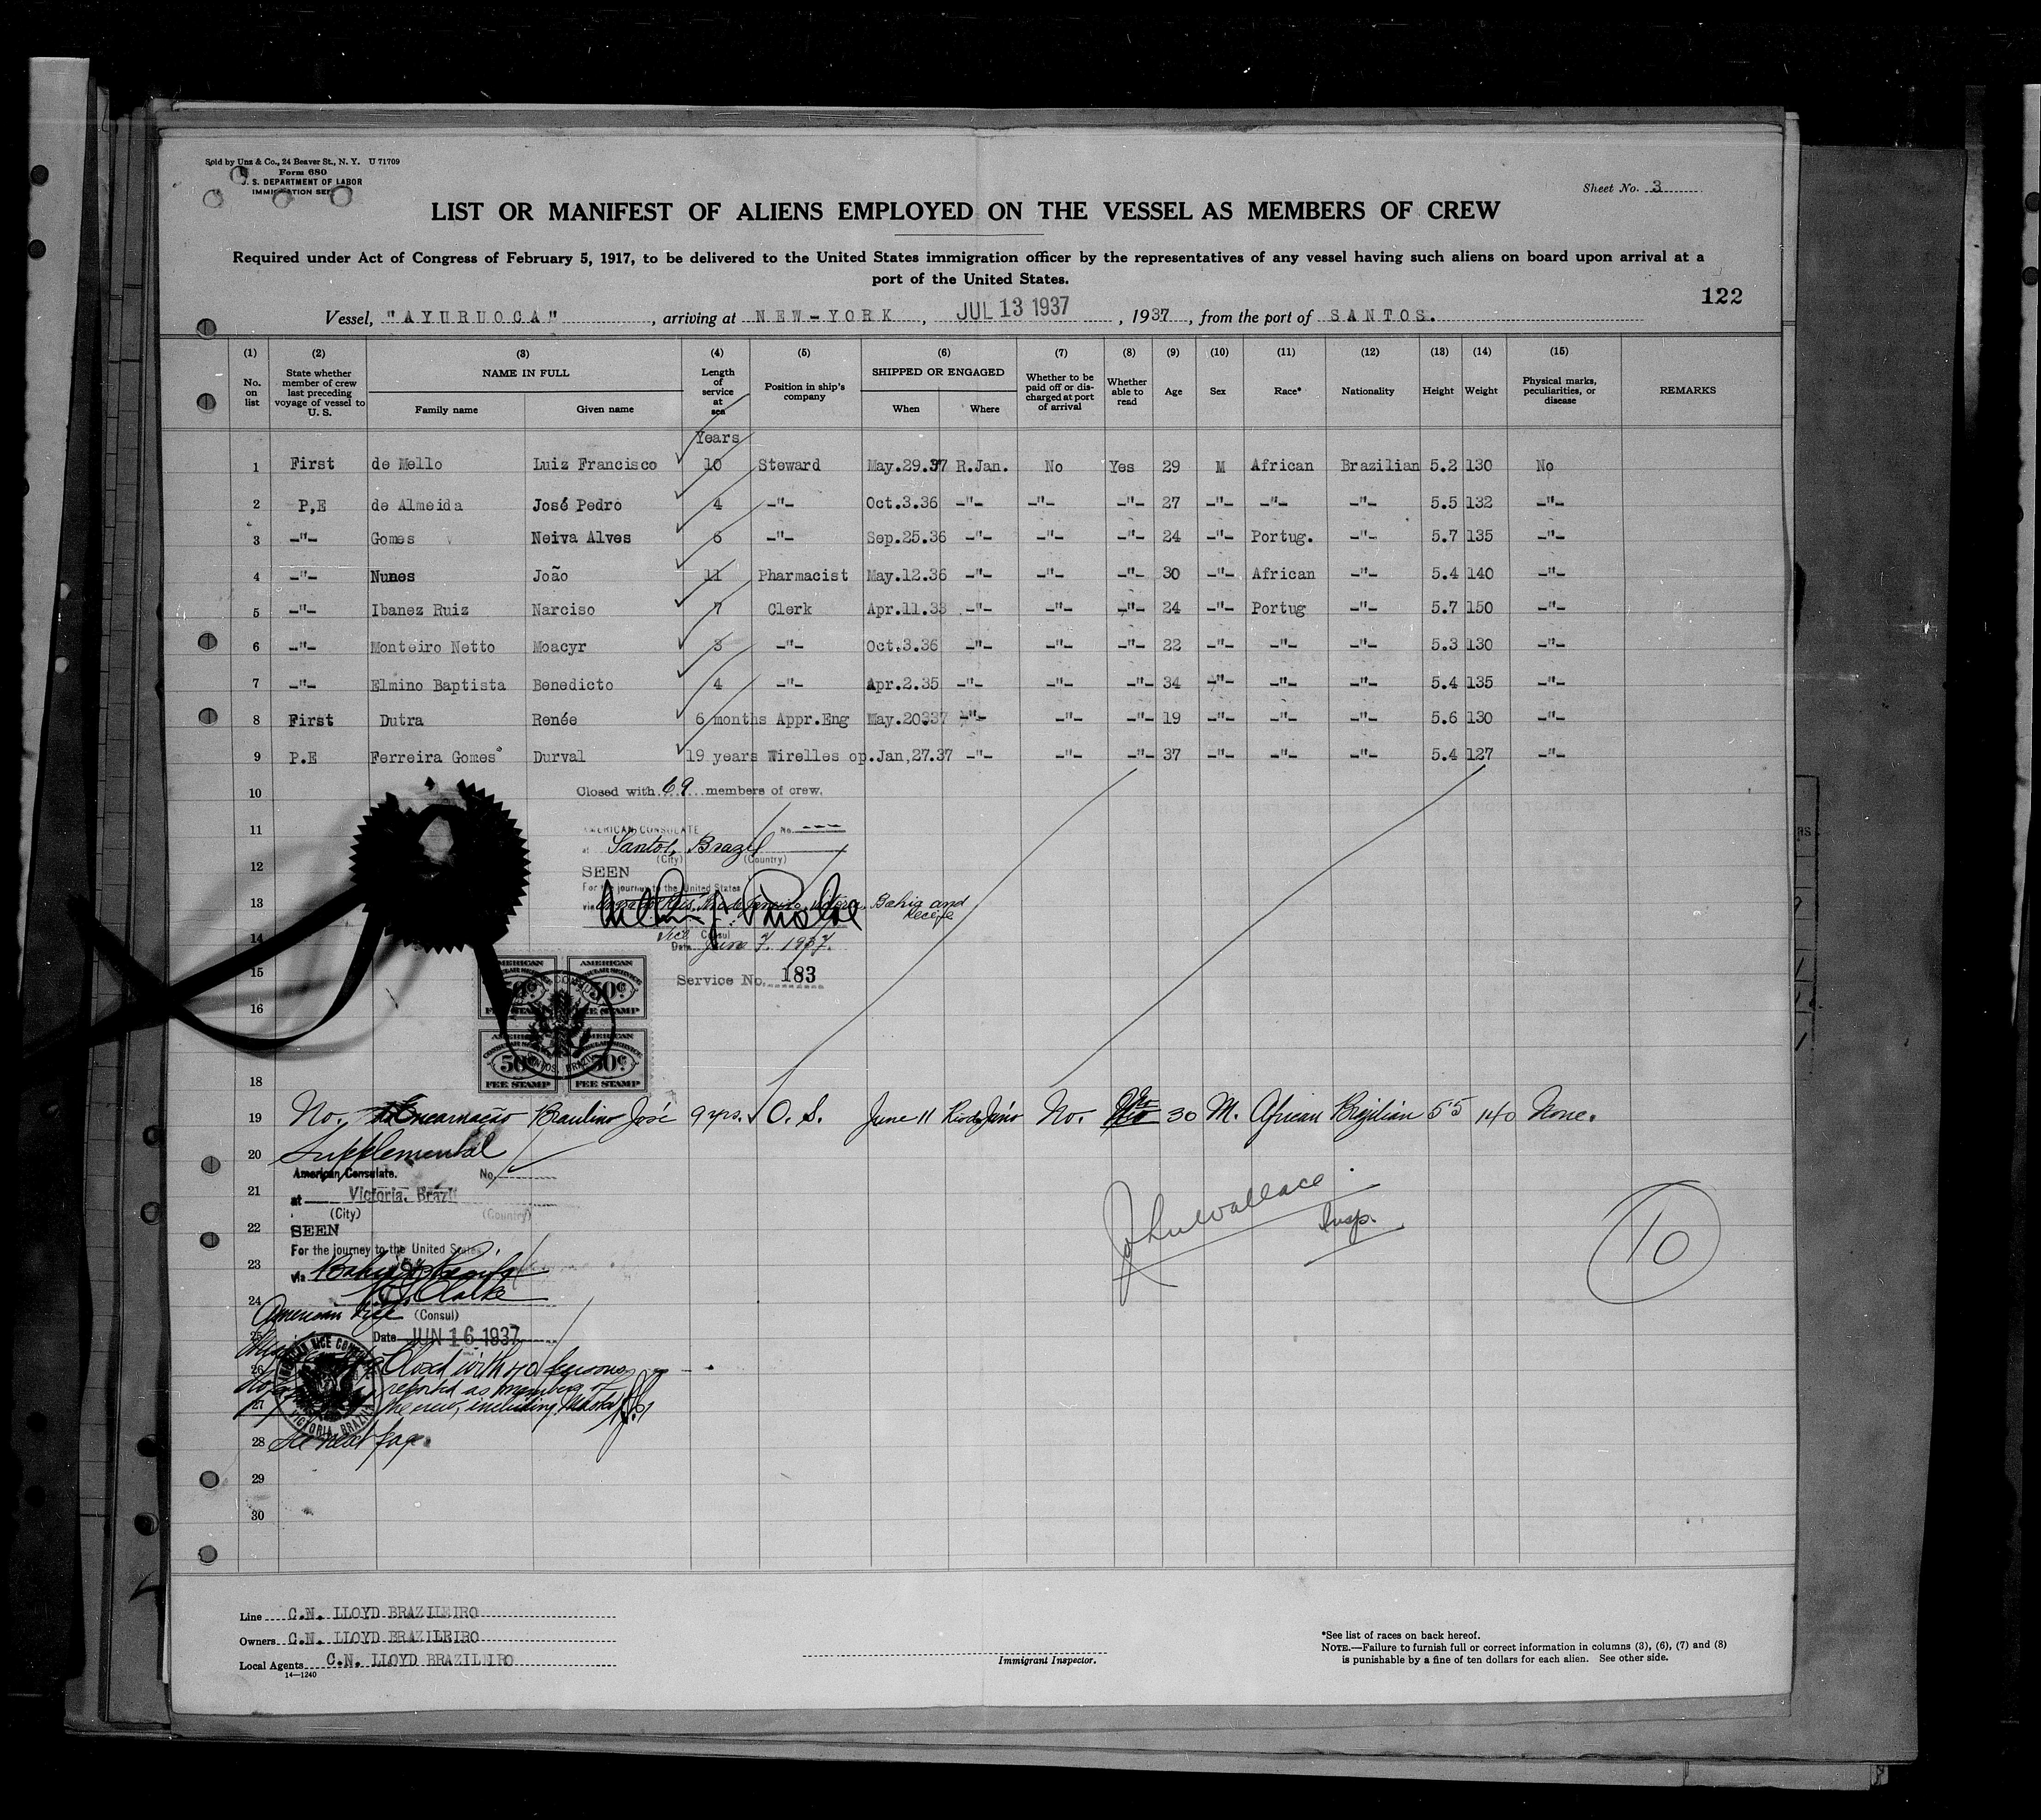 Sold by Unz & Co., 24 Beaver St., N. Y. U 71709
Form 680
U. S. DEPARTMENT OF LABOR
IMMIGRATION SER
Sheet No. 3
LIST OR MANIFEST OF ALIENS EMPLOYED ON THE VESSEL AS MEMBERS OF CREW
Required under Act of Congress of February 5, 1917, to be delivered to the United States immigration officer by the representatives of any vessel having such aliens on board upon arrival at a
port of the United States.
122
Vessel, "AYURUOCA", arriving at NEW-YORK, JUL 13 1937, 1937, from the port of SANTOS.
(1) (2) (3) (4) (5) (6) (7) (8) (9) (10) (11) (12) (13) (14) (15)
No. on list State whether member of crew last preceding voyage of vessel to U. S. NAME IN FULL Family name Given name Length of service at sea Position in ship's company SHIPPED OR ENGAGED When Where Whether to be paid off or discharged at port of arrival Whether able to read Age Sex Race* Nationality Height Weight Physical marks, peculiarities, or disease REMARKS
Years
1 First de Mello Luiz Francisco 10 Steward May.29.37 R.Jan. No Yes 29 M African Brazilian 5.2 130 No
2 P,E de Almeida José Pedro 4 -"- Oct.3.36 -"- -"- -"- 27 -"- -"- -"- 5.5 132 -"-
3 -"- Gomes Neiva Alves 6 -"- Sep.25.36 -"- -"- -"- 24 -"- Portug. -"- 5.7 135 -"-
4 -"- Nunes João 11 Pharmacist May.12.36 -"- -"- -"- 30 -"- African -"- 5.4 140 -"-
5 -"- Ibanez Ruiz Narciso 7 Clerk Apr.11.33 -"- -"- -"- 24 -"- Portug -"- 5.7 150 -"-
6 -"- Monteiro Netto Moacyr 3 -"- Oct.3.36 -"- -"- -"- 22 -"- -"- -"- 5.3 130 -"-
7 -"- Elmino Baptista Benedicto 4 -"- Apr.2.35 -"- -"- -"- 34 -"- -"- -"- 5.4 135 -"-
8 First Dutra Renée 6 months Appr.Eng May.20.37 -"- -"- -"- 19 -"- -"- -"- 5.6 130 -"-
9 P.E Ferreira Gomes Durval 19 years Wirelles op. Jan,27.37 -"- -"- -"- 37 -"- -"- -"- 5.4 127 -"-
10 Closed with 69 members of crew.
11 AMERICAN CONSULATE No. ---
at Santos, Brazil
12 (City) (Country)
SEEN
For the journey to the United States
13 via Rio de Janeiro, Victoria, Bahia and
Recife
Vice Consul
14 Date June 7, 1937.
15 Service No. 183
AMERICAN CONSULAR SERVICE 50¢ FEE STAMP
16
18
19 No. da Encarnação Braulino José 9 yrs. O. S. June 11 Rio de Jan'o No. 30 M. African Brazilian 5'5 140 None.
20 Supplemental
American Consulate. No.
21 at Victoria, Brazil
(City) (Country)
22 SEEN
For the journey to the United States
23 via Bahia & Recife
24 Clarke
American Vice (Consul)
25 Date JUN 16 1937
26 Closed with 70 persons
reported as members of
27 the crew, including Master
28 See next page.
29
30
AMERICAN VICE CONSULATE VICTORIA, BRAZIL
John Wallace
Insp.
10
Line C.N. LLOYD BRAZILEIRO
Owners C.N. LLOYD BRAZILEIRO
Local Agents C.N. LLOYD BRAZILEIRO
14—1240
Immigrant Inspector.
*See list of races on back hereof.
NOTE.—Failure to furnish full or correct information in columns (3), (6), (7) and (8)
is punishable by a fine of ten dollars for each alien. See other side.